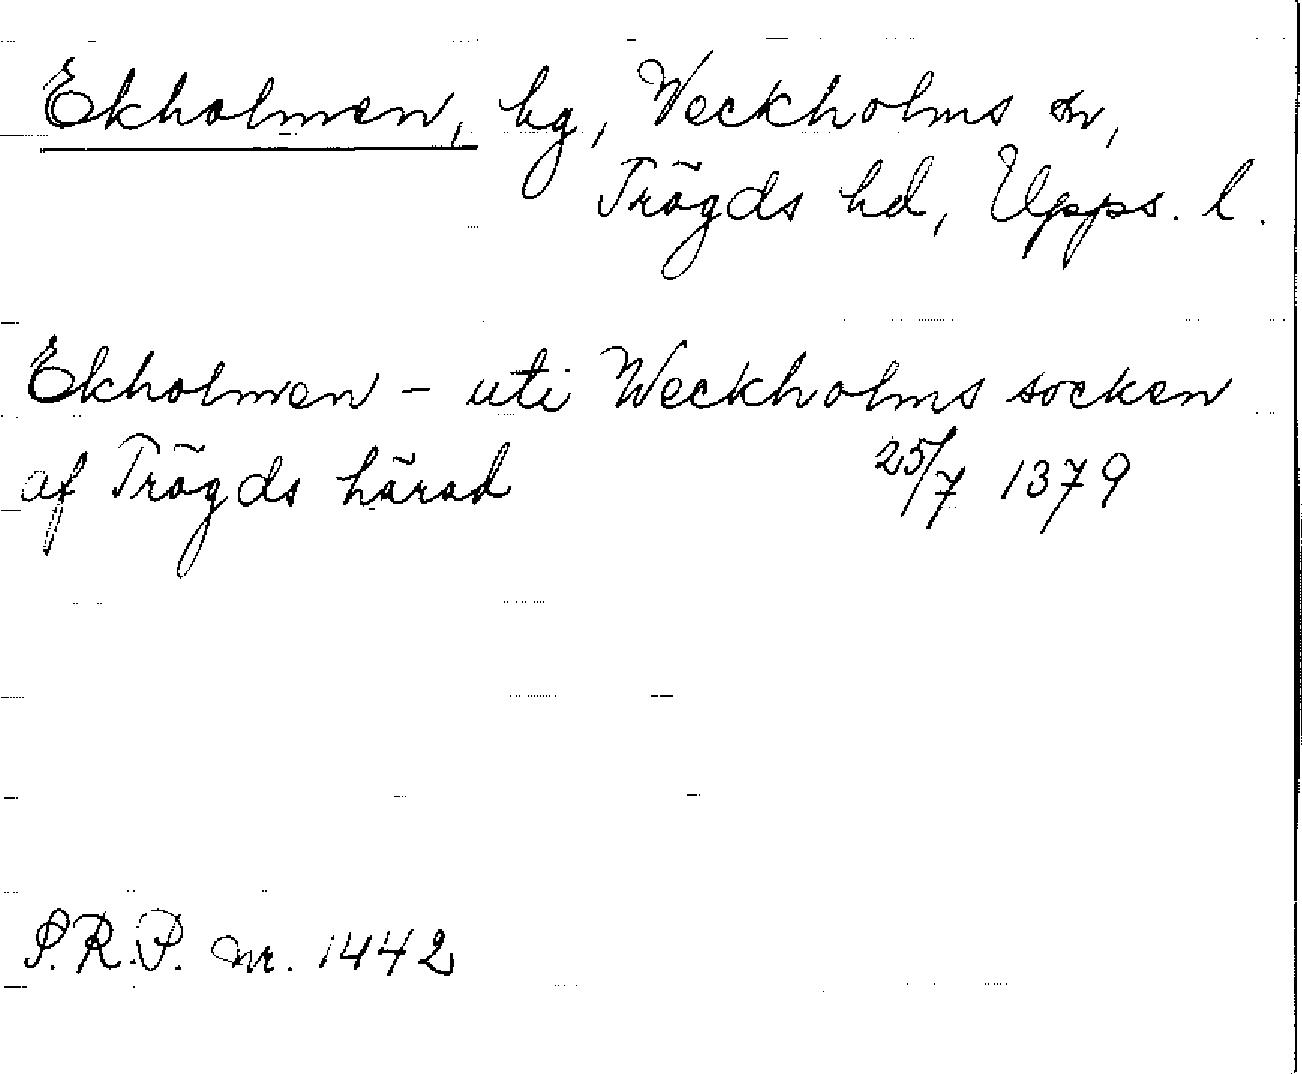 Ekholmen, hg, Weckholms sn,
Trögds hd, Upps. l.
Ekholmen - uti Weckholms socken
af Trögds härad 25/7 1379
S.R.P. nr. 1442